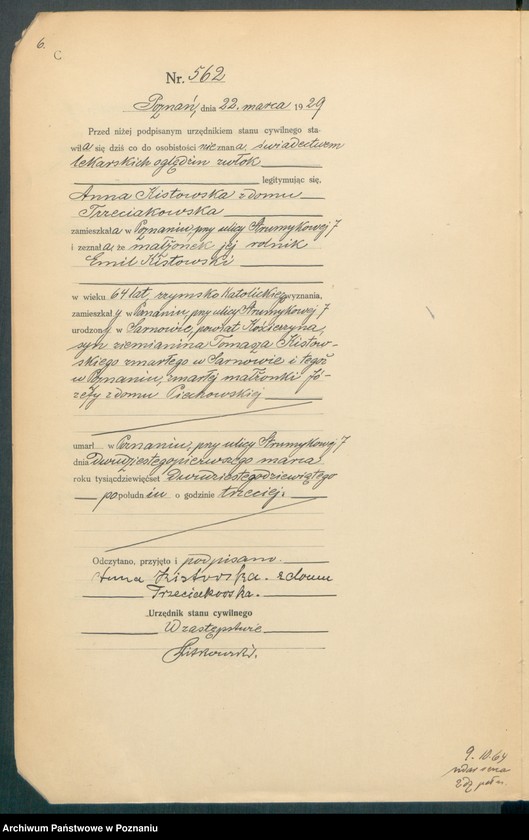 6.
C
Nr. 562
Poznań, dnia 22. marca 1929
Przed niżej podpisanym urzędnikiem stanu cywilnego sta-
wiła się dziś co do osobistości nieznana, świadectwem
lekarskich oględzin zwłok
legitymując się,
Anna Kistowska z domu
Trzeciakowska
zamieszkała w Poznaniu, przy ulicy Strumykowej 7
i zeznała, że małżonek jej rolnik
Emil Kistowski
w wieku 64 lat, rzymsko Katolickiego wyznania,
zamieszkały w Poznaniu, przy ulicy Strumykowej 7
urodzony w Sarnowie, powiat Kościerzyna,
syn ziemianina Tomasza Kistow-
skiego zmarłego w Sarnowie i tegoż
w Poznaniu, zmarłej małżonki Jó-
zefy z domu Piechowskiej
umarł w Poznaniu, przy ulicy Strumykowej 7
dnia Dwudziestegopierwszego marca
roku tysiącdziewięćset Dwudziestegodziewiątego
po południu o godzinie trzeciej.
Odczytano, przyjęto i podpisano.
Anna Kistowska. z domu
Trzeciakowska.
Urzędnik stanu cywilnego
W zastępstwie
9. 10. 64
Archiwum Państwowe w Poznaniu